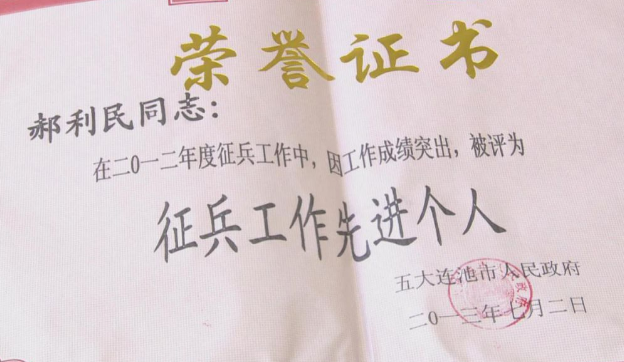 荣誉证书
郝利民同志：
在二0一二年度征兵工作中，因工作成绩突出，被评为
征兵工作先进个人
五大连池市人民政府
二0一三年七月二日